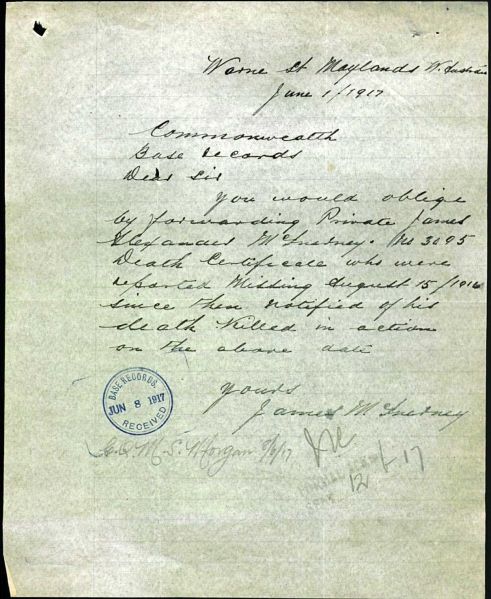 Warne St Maylands W. Australia
June 1/1917
Commonwealth
Base records
Dear Sir
You would oblige
by forwarding Private James
Alexander McInerney. No 3095
Death Certificate who were
reported Missing August 15/1916
since then notified of his
death Killed in action
on the above date
yours
James McInerney
BASE RECORDS.
JUN 8 1917
RECEIVED
S. Morgan 9/6/17
12 17